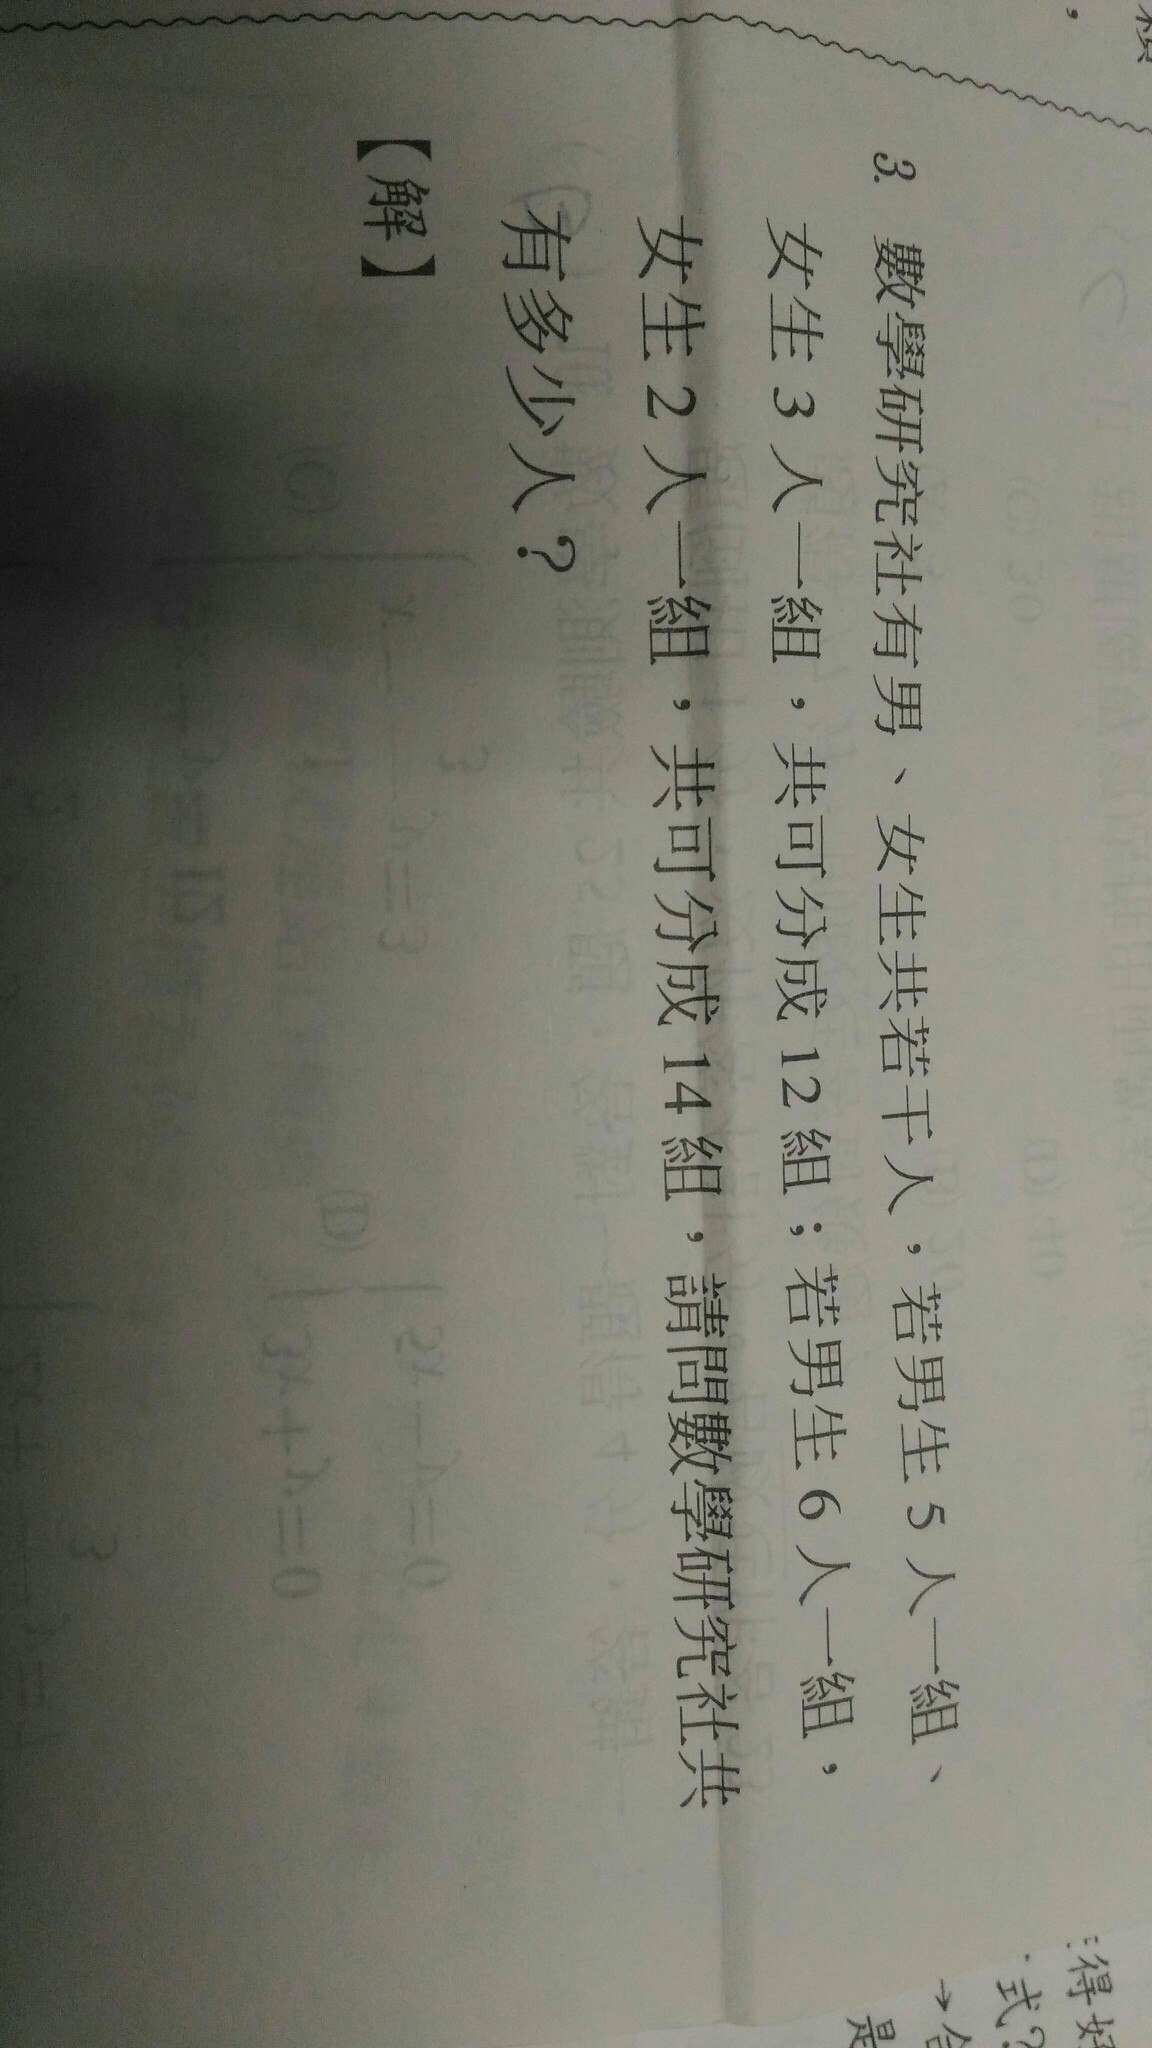 3. 數學研究社有男、女生共若干人，若男生 5 人一組、
女生 3 人一組，共可分成 12 組；若男生 6 人一組，
女生 2 人一組，共可分成 14 組，請問數學研究社共
有多少人？
【解】
得
式？
→
是